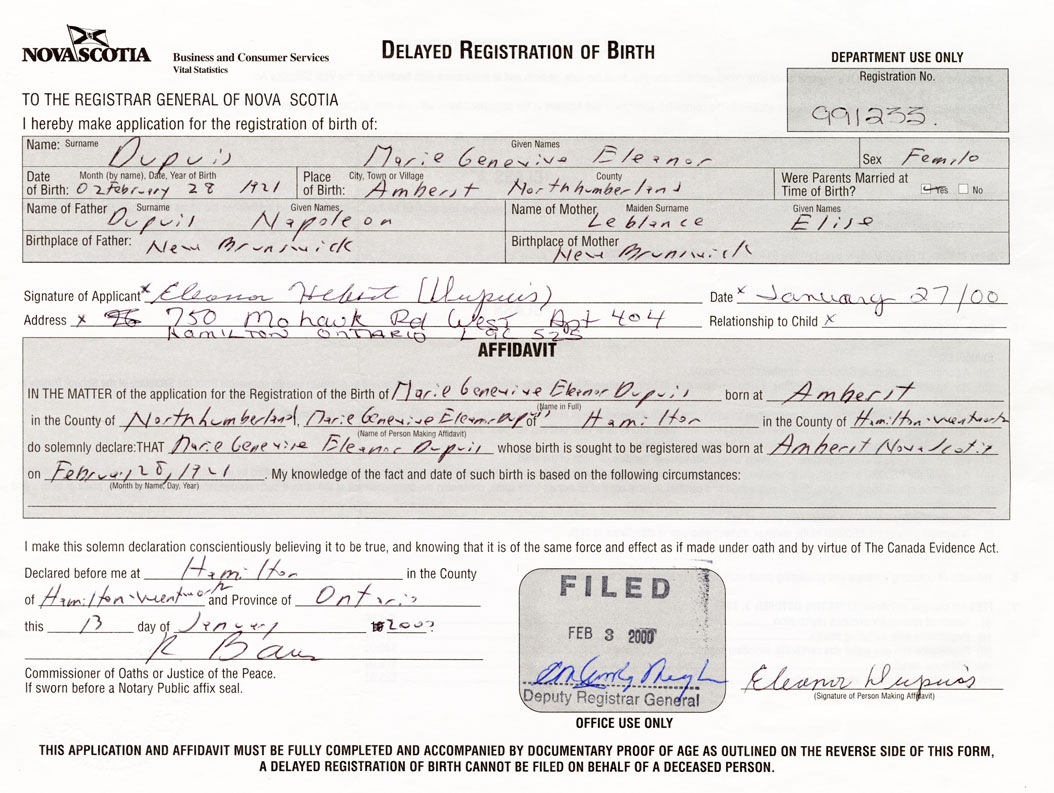 NOVA SCOTIA
Business and Consumer Services
Vital Statistics
DELAYED REGISTRATION OF BIRTH
DEPARTMENT USE ONLY
Registration No.
991233.
TO THE REGISTRAR GENERAL OF NOVA SCOTIA
I hereby make application for the registration of birth of:
Name: Surname Dupuis Given Names Marie Genevive Eleanor Sex Female
Date of Birth: Month (by name), Date, Year of Birth 02 February 28 1921 Place of Birth: City, Town or Village Amherst County Northhumberland Were Parents Married at Time of Birth? Yes No
Name of Father Surname Dupuis Given Names Napoleon Name of Mother Maiden Surname Leblance Given Names Elise
Birthplace of Father: New Brunswick Birthplace of Mother New Brunswick
Signature of Applicant x Eleanor Hebert (Dupuis) Date x January 27/00
Address x 750 Mohawk Rd West Apt 404 Relationship to Child x
HAMILTON ONTARIO
AFFIDAVIT
IN THE MATTER of the application for the Registration of the Birth of Marie Genevive Eleanor Dupuis born at Amherst
(Name in Full)
in the County of Northhumberland, Marie Genevive Eleanor Dupuis of Hamilton in the County of Hamilton-Wentworth
(Name of Person Making Affidavit)
do solemnly declare:THAT Marie Genevive Eleanor Dupuis whose birth is sought to be registered was born at Amherst Nova Scotia
on February 28, 1921. My knowledge of the fact and date of such birth is based on the following circumstances:
(Month by Name, Day, Year)
I make this solemn declaration conscientiously believing it to be true, and knowing that it is of the same force and effect as if made under oath and by virtue of The Canada Evidence Act.
Declared before me at Hamilton in the County
of Hamilton-Wentworth and Province of Ontario
this 13 day of January
Commissioner of Oaths or Justice of the Peace.
If sworn before a Notary Public affix seal.
FILED
FEB 3 2000
Deputy Registrar General
OFFICE USE ONLY
Eleanor Dupuis
(Signature of Person Making Affidavit)
THIS APPLICATION AND AFFIDAVIT MUST BE FULLY COMPLETED AND ACCOMPANIED BY DOCUMENTARY PROOF OF AGE AS OUTLINED ON THE REVERSE SIDE OF THIS FORM,
A DELAYED REGISTRATION OF BIRTH CANNOT BE FILED ON BEHALF OF A DECEASED PERSON.